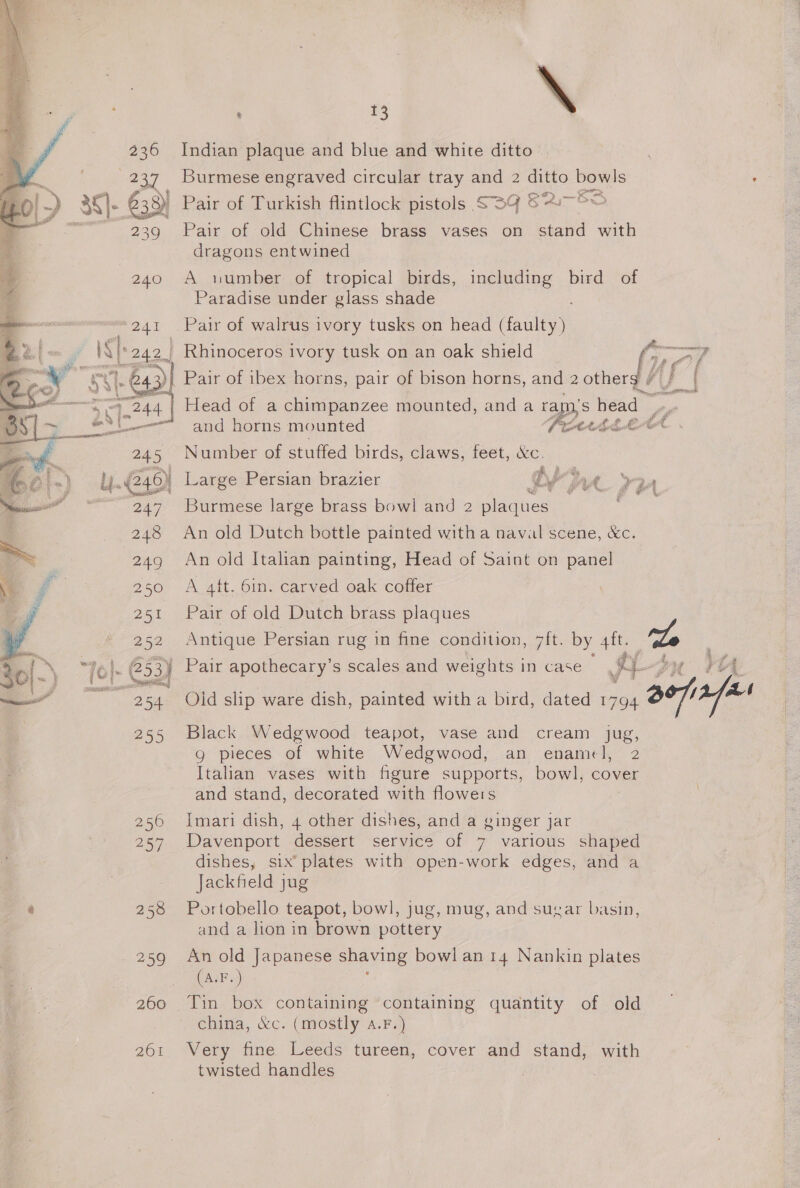 13
236 Indian plaque and blue and white ditto
237 Burmese engraved circular tray and 2 ditto bowls
40/-) 35/- (238) Pair of Turkish flintlock pistols S39 82-83
239 Pair of old Chinese brass vases on stand with
dragons entwined
240 A number of tropical birds, including bird of
Paradise under glass shade
241 Pair of walrus ivory tusks on head (faulty)
22/- 15/- 242 Rhinoceros ivory tusk on an oak shield
55/- (243) Pair of ibex horns, pair of bison horns, and 2 others
244 Head of a chimpanzee mounted, and a ram's head
35/- and horns mounted
245 Number of stuffed birds, claws, feet, &c.
60/-) (246) Large Persian brazier
247 Burmese large brass bowl and 2 plaques
248 An old Dutch bottle painted with a naval scene, &c.
249 An old Italian painting, Head of Saint on panel
250 A 4ft. 6in. carved oak coffer
251 Pair of old Dutch brass plaques
252 Antique Persian rug in fine condition, 7ft. by 4ft.
30/-) (253) Pair apothecary's scales and weights in case
254 Old slip ware dish, painted with a bird, dated 1794
255 Black Wedgwood teapot, vase and cream jug,
9 pieces of white Wedgwood, an enamel, 2
Italian vases with figure supports, bowl, cover
and stand, decorated with flowers
256 Imari dish, 4 other dishes, and a ginger jar
257 Davenport dessert service of 7 various shaped
dishes, six plates with open-work edges, and a
Jackfield jug
258 Portobello teapot, bowl, jug, mug, and sugar basin,
and a lion in brown pottery
259 An old Japanese shaving bowl an 14 Nankin plates
(A.F.)
260 Tin box containing containing quantity of old
china, &c. (mostly A.F.)
261 Very fine Leeds tureen, cover and stand, with
twisted handles